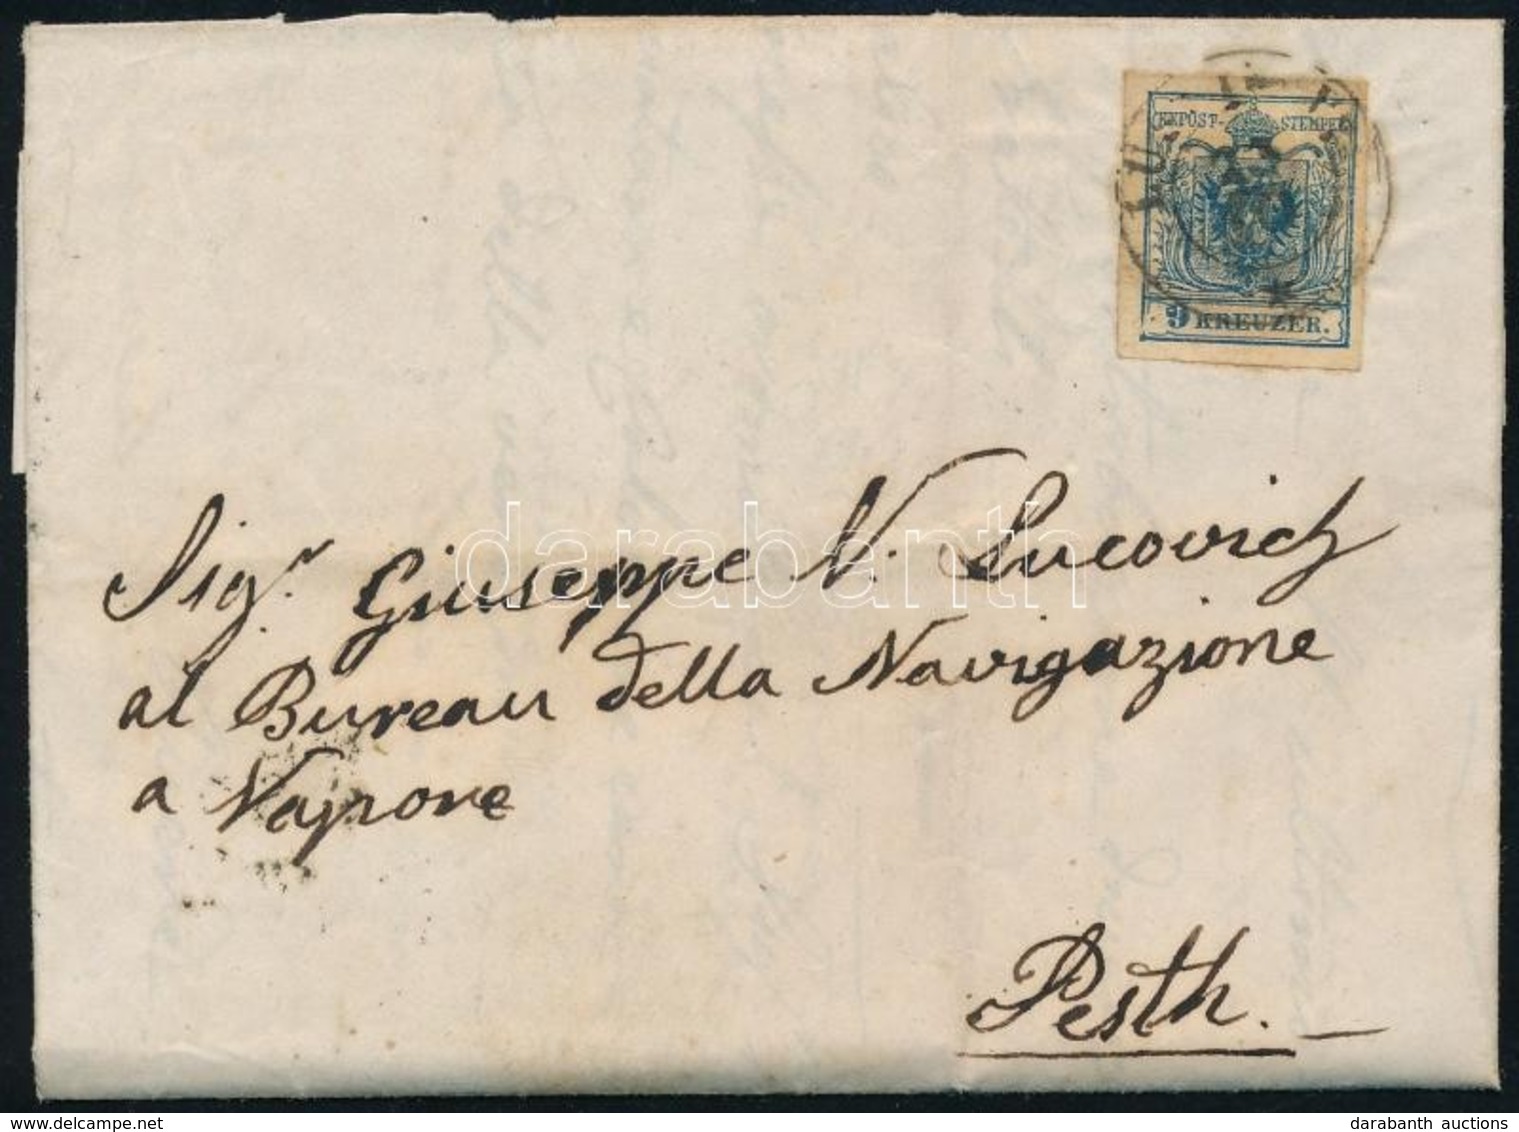 KKPOST-STEMPEL
9 KREUZER.
darabanth
Sig.r Giuseppe N. Lucovich
al Bureau della Navigazione
a Vapore
Pesth.
delcampe.net
darabanth auctions